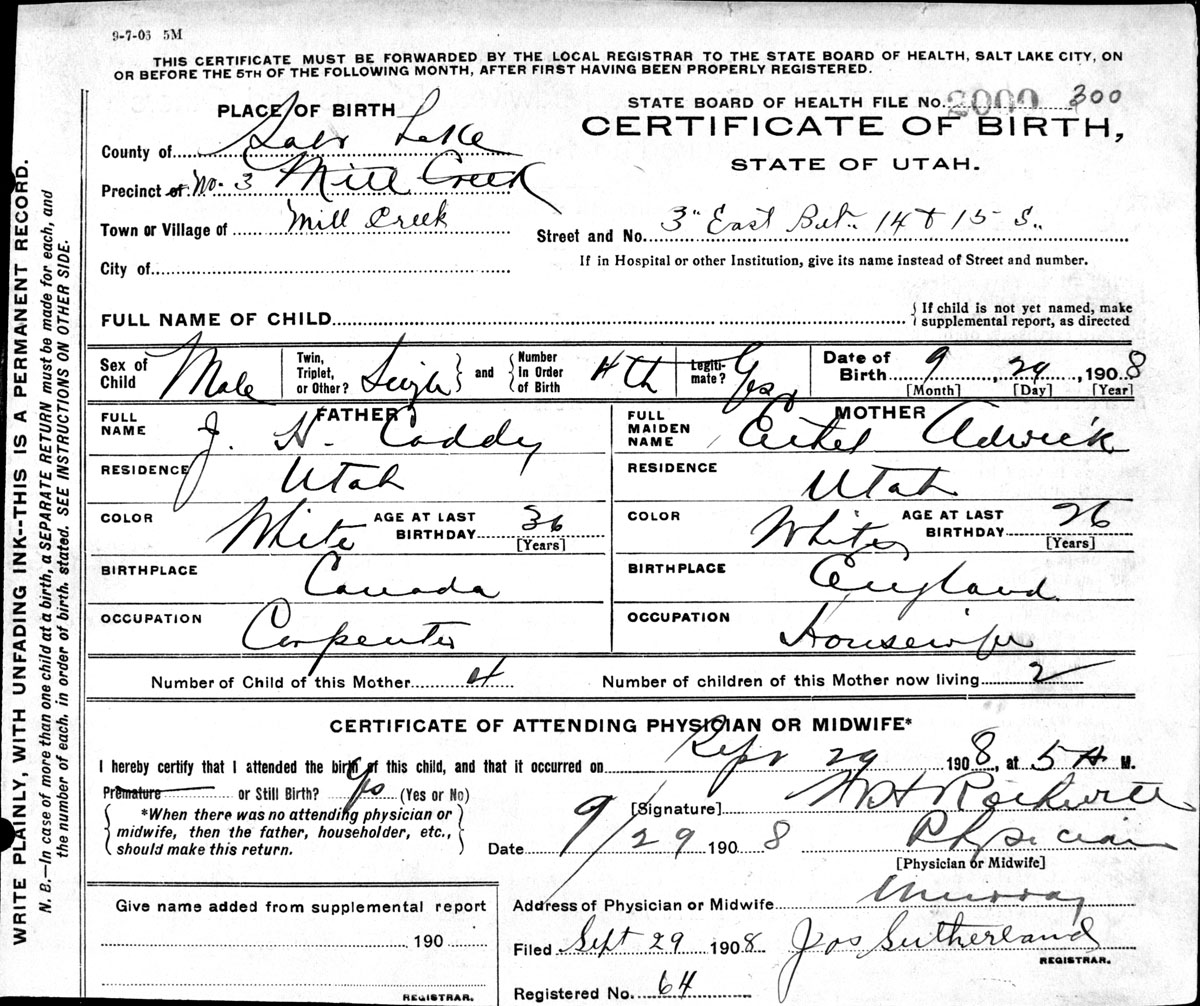 9-7-06 5M
THIS CERTIFICATE MUST BE FORWARDED BY THE LOCAL REGISTRAR TO THE STATE BOARD OF HEALTH, SALT LAKE CITY, ON
OR BEFORE THE 5TH OF THE FOLLOWING MONTH, AFTER FIRST HAVING BEEN PROPERLY REGISTERED.
WRITE PLAINLY, WITH UNFADING INK--THIS IS A PERMANENT RECORD.
N. B.—In case of more than one child at a birth, a SEPARATE RETURN must be made for each, and
the number of each, in order of birth, stated. SEE INSTRUCTIONS ON OTHER SIDE.
PLACE OF BIRTH
County of Salt Lake
Precinct of No. 3 Mill Creek
Town or Village of Mill Creek
City of
STATE BOARD OF HEALTH FILE No. 2000 300
CERTIFICATE OF BIRTH,
STATE OF UTAH.
Street and No. 3" East Bet. 14 & 15 S.
If in Hospital or other Institution, give its name instead of Street and number.
FULL NAME OF CHILD
{If child is not yet named, make
supplemental report, as directed
Sex of Child Male
Twin, Triplet, or Other? Single
and
Number In Order of Birth 4th
Legitimate? Yes
Date of Birth 9, 29, 1908
[Month] [Day] [Year]
FATHER
FULL NAME J. H. Caddy
RESIDENCE Utah
COLOR White AGE AT LAST BIRTHDAY 36
[Years]
BIRTHPLACE Canada
OCCUPATION Carpenter
MOTHER
FULL MAIDEN NAME Adwick
RESIDENCE Utah
COLOR White AGE AT LAST BIRTHDAY 26
[Years]
BIRTHPLACE England
OCCUPATION Housewife
Number of Child of this Mother 4 Number of children of this Mother now living 2
CERTIFICATE OF ATTENDING PHYSICIAN OR MIDWIFE*
I hereby certify that I attended the birth of this child, and that it occurred on Sept 29 1908, at 5 A M.
Premature or Still Birth? Yes (Yes or No)
*When there was no attending physician or
midwife, then the father, householder, etc.,
should make this return.
[Signature]
Date 9/29 1908 Physician
[Physician or Midwife]
Address of Physician or Midwife Murray
Filed Sept 29 1908 Jos Sutherland
REGISTRAR.
Registered No. 64
Give name added from supplemental report
190
REGISTRAR.